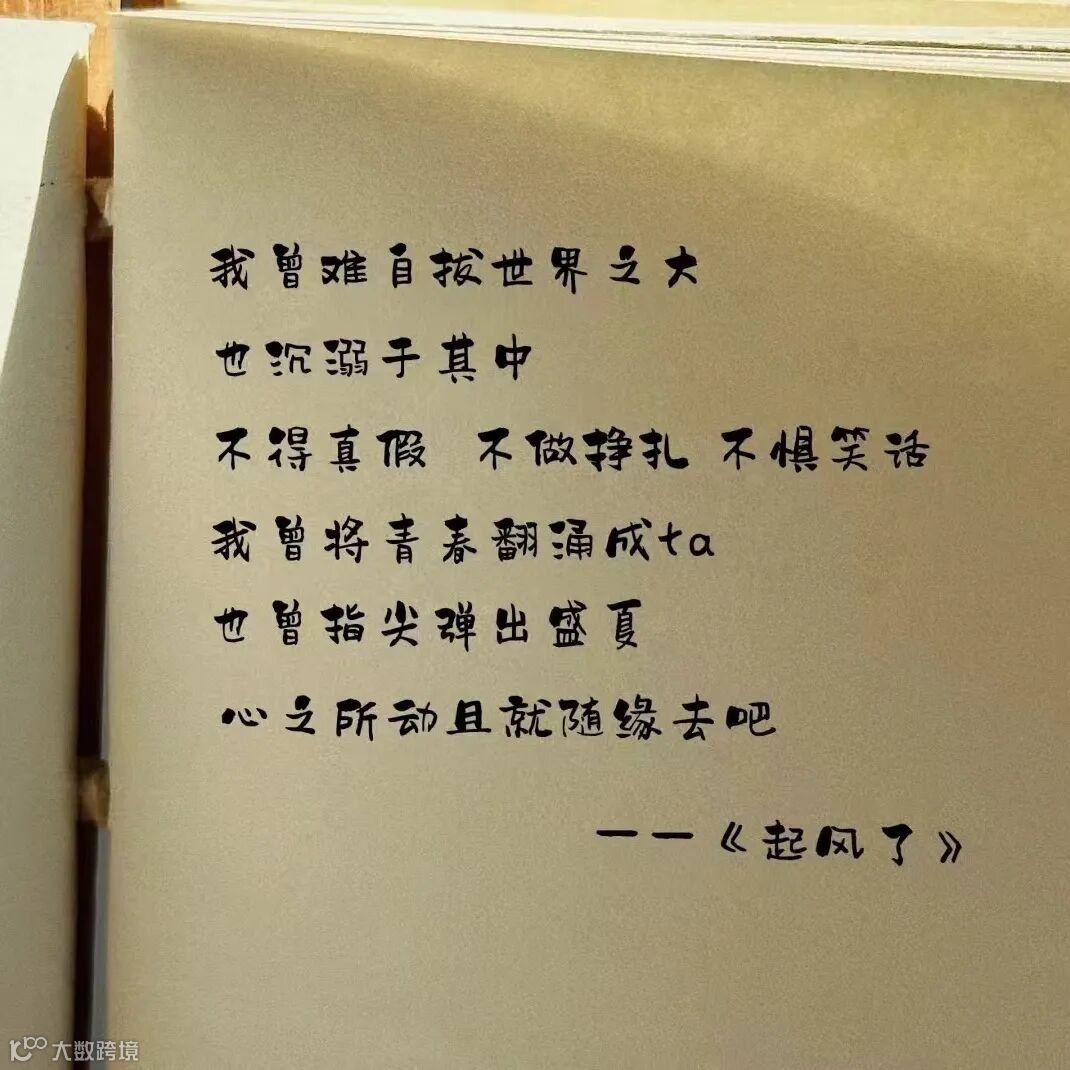 我曾难自拔世界之大
也沉溺于其中
不得真假 不做挣扎 不惧笑话
我曾将青春翻涌成ta
也曾指尖弹出盛夏
心之所动且就随缘去吧
——《起风了》
大数跨境